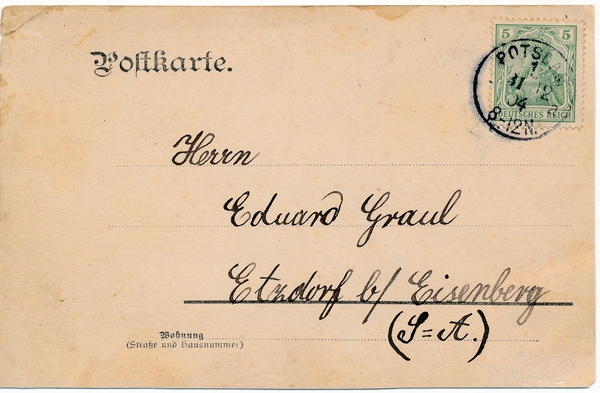 Postkarte.
5 5
POTSDAM
1
31 12
04
8-12N.
DEUTSCHES REICH
Herrn
Eduard Graul
Etzdorf b/ Eisenberg
(S=A.)
Wohnung
(Straße und Hausnummer)